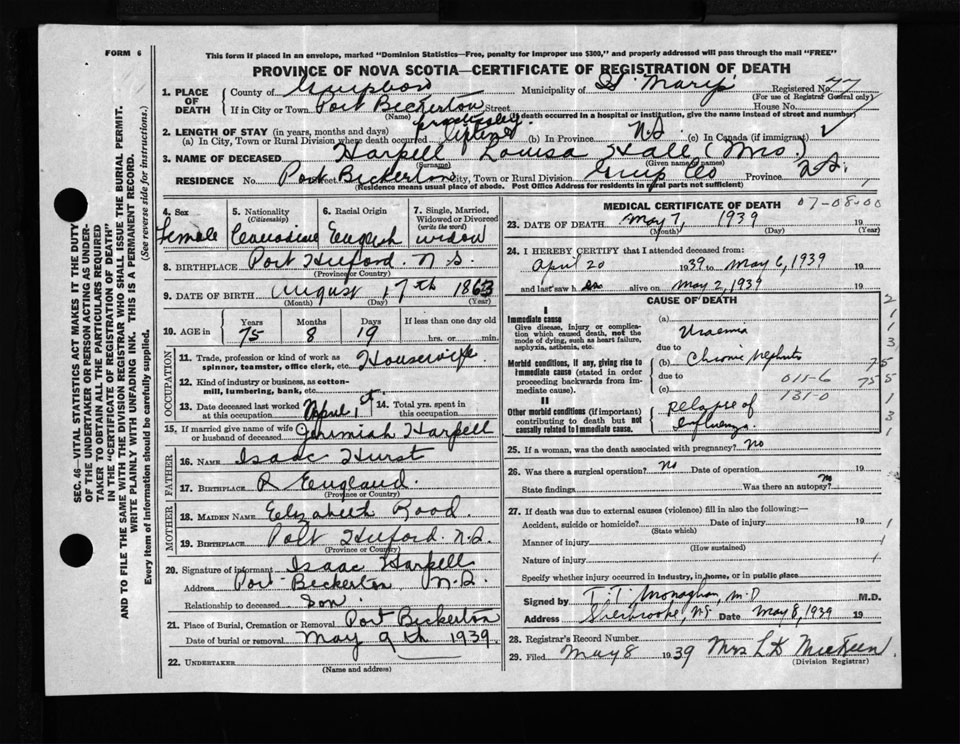 FORM 6
This form if placed in an envelope, marked "Dominion Statistics—Free, penalty for improper use $300," and properly addressed will pass through the mail "FREE"
PROVINCE OF NOVA SCOTIA—CERTIFICATE OF REGISTRATION OF DEATH
SEC. 46—VITAL STATISTICS ACT MAKES IT THE DUTY
OF THE UNDERTAKER OR PERSON ACTING AS UNDER-
TAKER TO OBTAIN ALL THE PARTICULARS REQUIRED
IN THE "CERTIFICATE OF REGISTRATION OF DEATH"
AND TO FILE THE SAME WITH THE DIVISION REGISTRAR WHO SHALL ISSUE THE BURIAL PERMIT.
WRITE PLAINLY WITH UNFADING INK. THIS IS A PERMANENT RECORD.
Every item of information should be carefully supplied. (See reverse side for instructions.)
1. PLACE OF DEATH County of Municipality of St Mary's Registered No. 77
(For use of Registrar General only)
If in City or Town Port Beckerton Street House No.
(Name) (If death occurred in a hospital or institution, give its name instead of street and number)
2. LENGTH OF STAY (in years, months and days)
(a) In City, Town or Rural Division where death occurred practically lifetime (b) In Province N.S. (c) In Canada (if immigrant)
3. NAME OF DECEASED Harpell Louisa Hale (Mrs.)
(Surname) (Given name or names)
RESIDENCE No. Port Beckerton Street City, Town or Rural Division Guys Co Province N.S.
(Residence means usual place of abode. Post Office Address for residents in rural parts not sufficient)
4. Sex Female
5. Nationality (Citizenship) Canadian
6. Racial Origin English
7. Single, Married, Widowed or Divorced (write the word) widow
8. BIRTHPLACE Port Hilford. N.S.
(Province or Country)
9. DATE OF BIRTH August 17th 1863
(Month) (Day) (Year)
10. AGE in Years 75 Months 8 Days 19 If less than one day old hrs. or min.
OCCUPATION
11. Trade, profession or kind of work as spinner, teamster, office clerk, etc. Housewife
12. Kind of industry or business, as cotton-mill, lumbering, bank, etc.
13. Date deceased last worked at this occupation April 1st 14. Total yrs. spent in this occupation
15. If married give name of wife or husband of deceased Jeremiah Harpell
FATHER
16. NAME Isaac Hurst
17. BIRTHPLACE England
(Province or Country)
MOTHER
18. MAIDEN NAME Elizabeth Rood
19. BIRTHPLACE Port Hilford. N.S.
(Province or Country)
20. Signature of informant Isaac Harpell
Address Port Beckerton N.S.
Relationship to deceased Son
21. Place of Burial, Cremation or Removal Port Beckerton
Date of burial or removal May 9th 1939
22. UNDERTAKER
(Name and address)
MEDICAL CERTIFICATE OF DEATH 07-08-00
23. DATE OF DEATH May 7, 1939 19
(Month) (Day) (Year)
24. I HEREBY CERTIFY that I attended deceased from:
April 20 1939 to May 6, 1939 19
and last saw her alive on May 2, 1939 19
CAUSE OF DEATH
I
Immediate cause (a) Uraemia
Give disease, injury or complication which caused death, not the mode of dying, such as heart failure, asphyxia, asthenia, etc.
due to
Morbid conditions, if any, giving rise to immediate cause (stated in order proceeding backwards from immediate cause). (b) Chronic Nephritis
due to 011-6
(c) 131-0
II
Other morbid conditions (if important) contributing to death but not causally related to immediate cause. Relapse of Influenza.
2
1
1
3
75
75 5
1
3
1
25. If a woman, was the death associated with pregnancy? No
26. Was there a surgical operation? No Date of operation 19
State findings Was there an autopsy? No
27. If death was due to external causes (violence) fill in also the following:—
Accident, suicide or homicide? Date of injury 19 1
(State which)
Manner of injury 1
(How sustained)
Nature of injury 1
Specify whether injury occurred in industry, in home, or in public place
Signed by T.T. Monaghan, M.D M.D.
Address Sherbrooke, N.S. Date May 8, 1939 19
28. Registrar's Record Number
29. Filed May 8 1939 Mrs L D McKeen
(Division Registrar)